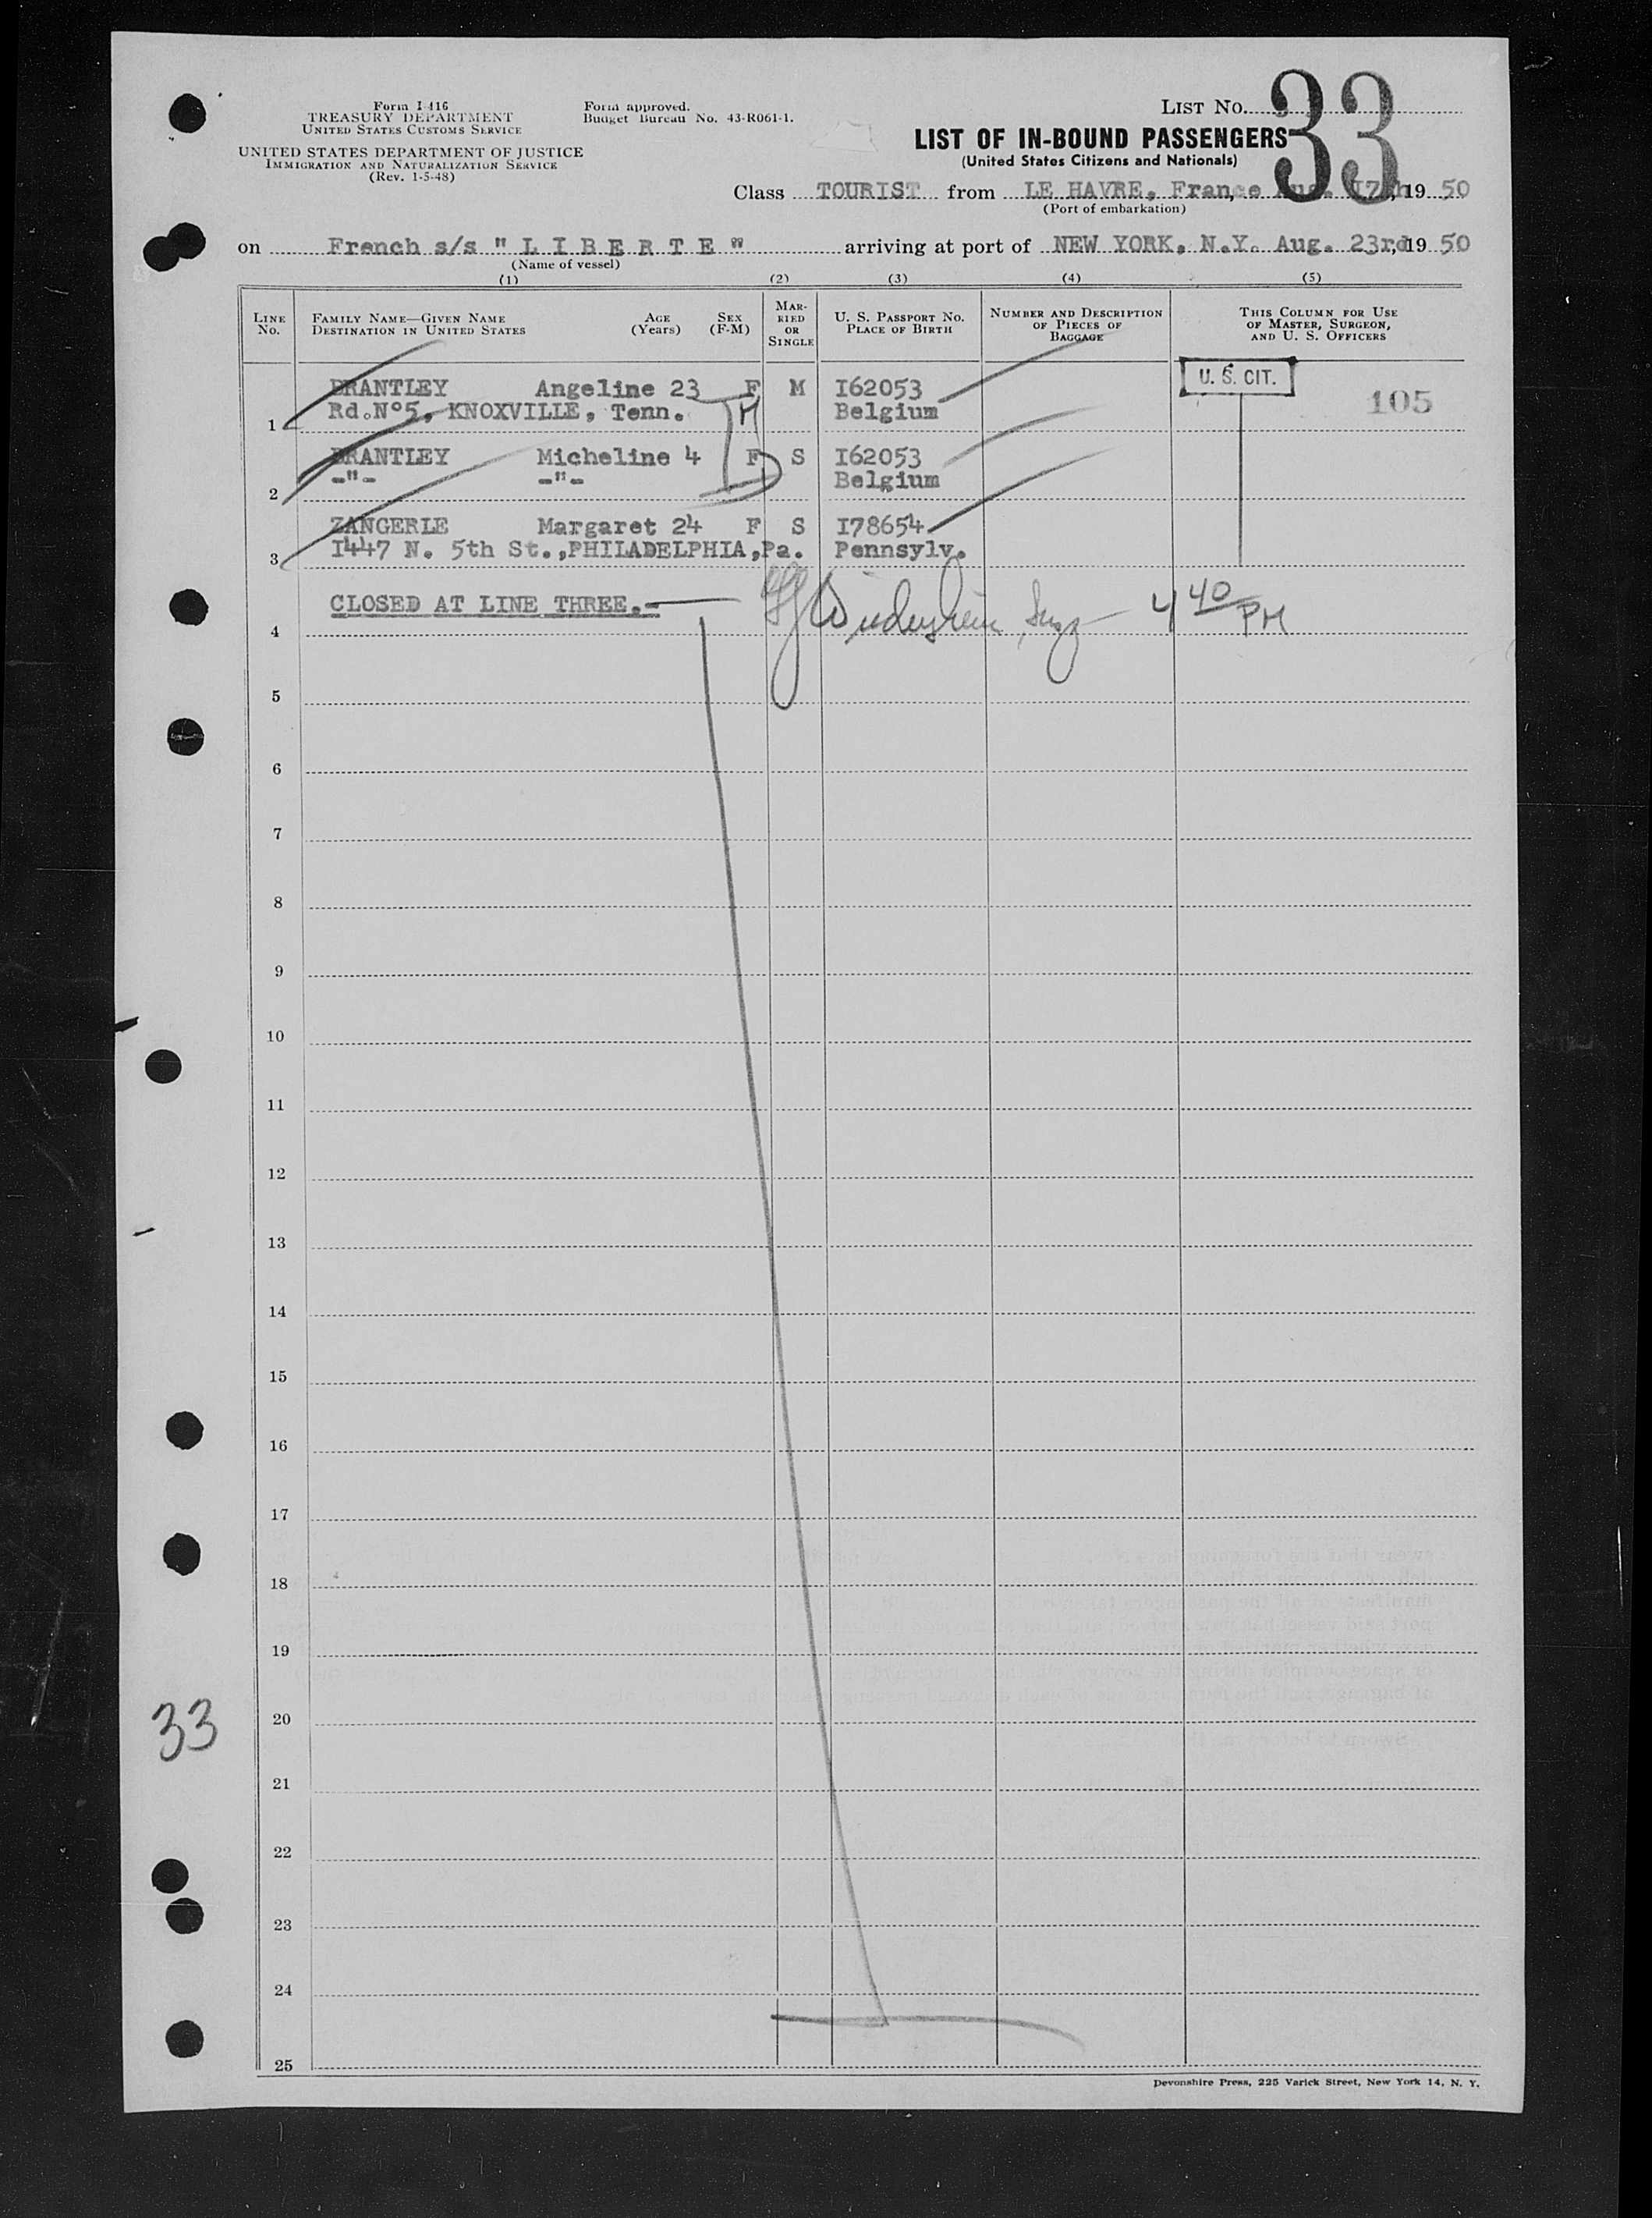 Form I 416
TREASURY DEPARTMENT
UNITED STATES CUSTOMS SERVICE
UNITED STATES DEPARTMENT OF JUSTICE
IMMIGRATION AND NATURALIZATION SERVICE
(Rev. 1-5-48)
Form approved.
Budget Bureau No. 43-R061-1.
LIST No. 33
LIST OF IN-BOUND PASSENGERS
(United States Citizens and Nationals)
Class TOURIST from LE HAVRE, France, Aug. I7th, 19 50
(Port of embarkation)
on French s/s " L I B E R T E " arriving at port of NEW YORK, N.Y. Aug. 23rd, 19 50
(Name of vessel)
(1) (2) (3) (4) (5)
LINE No. FAMILY NAME—GIVEN NAME DESTINATION IN UNITED STATES AGE (Years) SEX (F-M) MARRIED OR SINGLE U. S. PASSPORT No. PLACE OF BIRTH NUMBER AND DESCRIPTION OF PIECES OF BAGGAGE THIS COLUMN FOR USE OF MASTER, SURGEON, AND U. S. OFFICERS
BRANTLEY Angeline 23 F M I62053 U. S. CIT. 105
1 Rd.N°5, KNOXVILLE, Tenn. M Belgium
BRANTLEY Micheline 4 F S I62053
2 -"- -"- Belgium
ZANGERLE Margaret 24 F S I78654
3 I447 N. 5th St.,PHILADELPHIA,Pa. Pennsylv.
4 CLOSED AT LINE THREE.- 4 40 PM
5
6
7
8
9
10
11
12
13
14
15
16
17
18
19
20
33
21
22
23
24
25
Devonshire Press, 225 Varick Street, New York 14, N. Y.